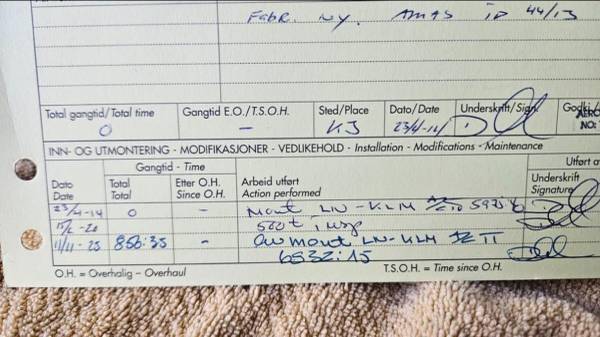 FABR. NY. AMAS ID 44/13
Total gangtid/Total time
0
Gangtid E.O./T.S.O.H.
-
Sted/Place
KJ
Dato/Date
23/4-14
Underskrift/Sign.
Godkj
AERO
NO:
INN- OG UTMONTERING - MODIFIKASJONER - VEDLIKEHOLD - Installation - Modifications - Maintenance
Gangtid - Time
Utført a
Dato
Date
Total
Total
Etter O.H.
Since O.H.
Arbeid utført
Action performed
Underskrift
Signature
23/4-14 0 - Mont LN-KLM
11/11-25 856:35 - Avmont LN-KLM
6532:15
O.H. = Overhalig - Overhaul
T.S.O.H. = Time since O.H.